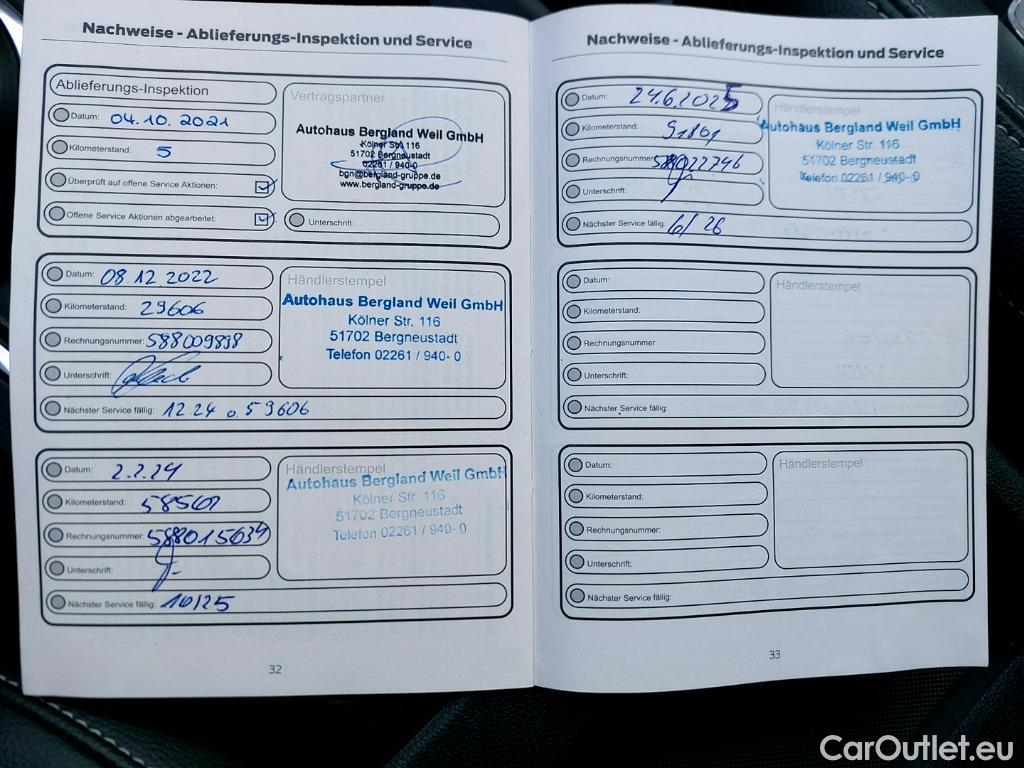 Nachweise - Ablieferungs-Inspektion und Service
Ablieferungs-Inspektion
Datum: 04.10.2021
Kilometerstand: 5
Überprüft auf offene Service Aktionen:
Offene Service Aktionen abgearbeitet:
Vertragspartner
Autohaus Bergland Weil GmbH
Kölner Str. 116
51702 Bergneustadt
02261 / 940-0
bgn@bergland-gruppe.de
www.bergland-gruppe.de
Unterschrift:
Datum: 08.12.2022
Kilometerstand: 29606
Rechnungsnummer: 588009898
Unterschrift:
Nächster Service fällig: 12.24 o. 59606
Händlerstempel
Autohaus Bergland Weil GmbH
Kölner Str. 116
51702 Bergneustadt
Telefon 02261 / 940- 0
Datum: 2.2.24
Kilometerstand: 58561
Rechnungsnummer: 588015634
Unterschrift:
Nächster Service fällig: 10/25
Händlerstempel
Autohaus Bergland Weil GmbH
Kölner Str. 116
51702 Bergneustadt
Telefon 02261 / 940- 0
32
Nachweise - Ablieferungs-Inspektion und Service
Datum: 24.6.2025
Kilometerstand: 91801
Rechnungsnummer: 588022746
Unterschrift:
Nächster Service fällig: 6/26
Händlerstempel
Autohaus Bergland Weil GmbH
Kölner Str. 116
51702 Bergneustadt
Telefon 02261 / 940- 0
Datum:
Kilometerstand:
Rechnungsnummer:
Unterschrift:
Nächster Service fällig:
Händlerstempel
Datum:
Kilometerstand:
Rechnungsnummer:
Unterschrift:
Nächster Service fällig:
Händlerstempel
33
CarOutlet.eu